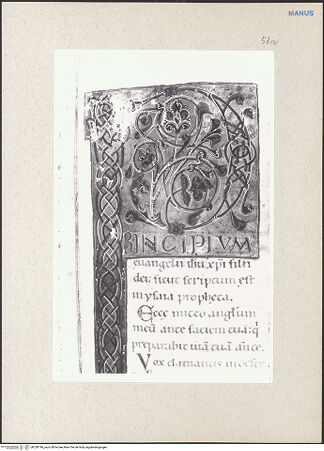 MANUS
INCIPIUM
euangelii ihu xpi filii
dei, sicut scriptum est
in ysaia propheta.
Ecce mitto anglum
meu ante faciem tua: q
preparabit uia tua ante.
Vox clamantis in